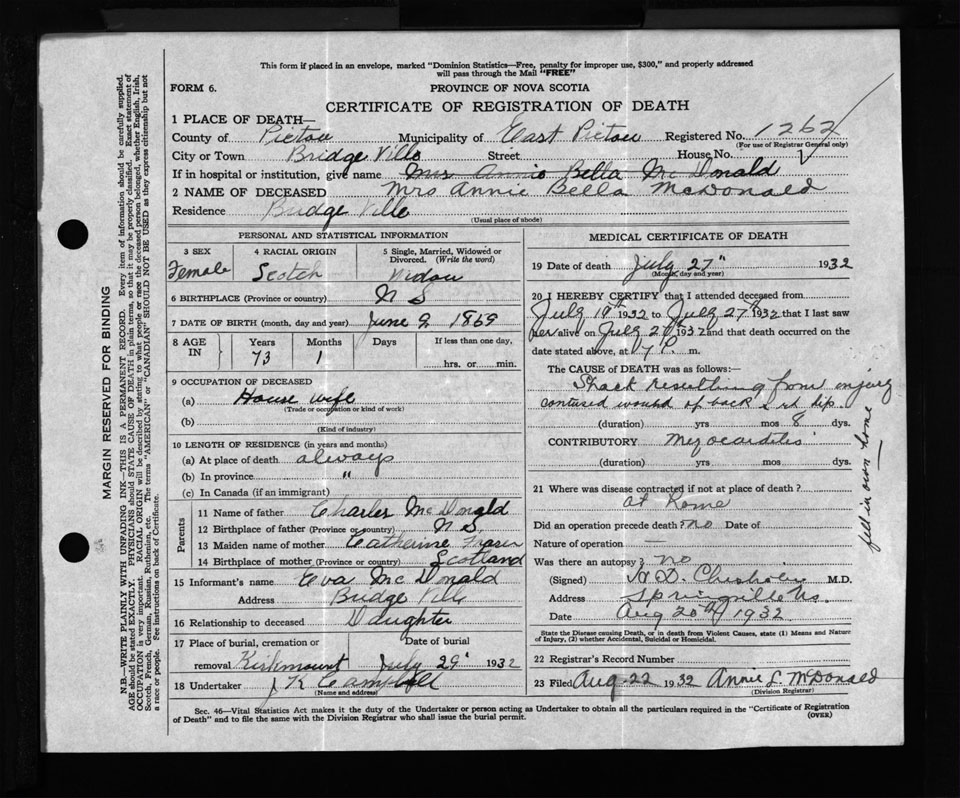 This form if placed in an envelope, marked "Dominion Statistics—Free, penalty for improper use, $300," and properly addressed
will pass through the Mail "FREE"
FORM 6.
PROVINCE OF NOVA SCOTIA
CERTIFICATE OF REGISTRATION OF DEATH
1 PLACE OF DEATH—
County of Pictou Municipality of East Pictou Registered No. 1262
(For use of Registrar General only)
City or Town Bridge Ville Street House No.
If in hospital or institution, give name Mrs Annie Bella McDonald
2 NAME OF DECEASED Mrs Annie Bella McDonald
Residence Bridge Ville
(Usual place of abode)
PERSONAL AND STATISTICAL INFORMATION
3 SEX 4 RACIAL ORIGIN 5 Single, Married, Widowed or
Divorced. (Write the word)
Female Scotch Widow
6 BIRTHPLACE (Province or country) N S
7 DATE OF BIRTH (month, day and year) June 9 1859
8 AGE IN Years Months Days If less than one day,
73 1 hrs. or min.
9 OCCUPATION OF DECEASED
(a) House wife
(Trade or occupation or kind of work)
(b)
(Kind of industry)
10 LENGTH OF RESIDENCE (in years and months)
(a) At place of death always
(b) In province "
(c) In Canada (if an immigrant)
Parents
11 Name of father Charles McDonald
12 Birthplace of father (Province or country) N S
13 Maiden name of mother Catherine Fraser
14 Birthplace of mother (Province or country) Scotland
15 Informant's name Eva McDonald
Address Bridge Ville
16 Relationship to deceased Daughter
17 Place of burial, cremation or Date of burial
removal Kirkmount July 29 1932
18 Undertaker J K Campbell
(Name and address)
MEDICAL CERTIFICATE OF DEATH
19 Date of death July 27" 1932
(Month, day and year)
20 I HEREBY CERTIFY that I attended deceased from
July 19th 1932 to July 27th 1932 that I last saw
her alive on July 27th 1932 and that death occurred on the
date stated above, at P m.
The CAUSE of DEATH was as follows:
Shock resulting from injury
contused wound of back & rt hip
(duration) yrs mos 8 dys.
CONTRIBUTORY Myocarditis
(duration) yrs mos dys.
fell in own home
21 Where was disease contracted if not at place of death?
at home
Did an operation precede death? no Date of
Nature of operation —
Was there an autopsy? no
(Signed) Chisholm M.D.
Address Springville N.S.
Date Aug 20th 1932
State the Disease causing Death, or in death from Violent Causes, state (1) Means and Nature
of Injury, (2) whether Accidental, Suicidal or Homicidal.
22 Registrar's Record Number
23 Filed Aug 22 1932 Annie L. McDonald
(Division Registrar)
Sec. 46—Vital Statistics Act makes it the duty of the Undertaker or person acting as Undertaker to obtain all the particulars required in the "Certificate of Registration
of Death" and to file the same with the Division Registrar who shall issue the burial permit. (OVER)
MARGIN RESERVED FOR BINDING
N.B.—WRITE PLAINLY WITH UNFADING INK—THIS IS A PERMANENT RECORD. Every item of information should be carefully supplied.
AGE should be stated EXACTLY. PHYSICIANS should STATE CAUSE OF DEATH in plain terms, so that it may be properly classified. Exact statement of
OCCUPATION is very important. RACIAL ORIGIN will be described by stating to what people or race the deceased person belonged, whether English, Irish,
Scotch, French, German, Russian, Ruthenian, etc. The terms "AMERICAN" or "CANADIAN" SHOULD NOT BE USED as they express citizenship but not
a race or people. See instructions on back of Certificate.